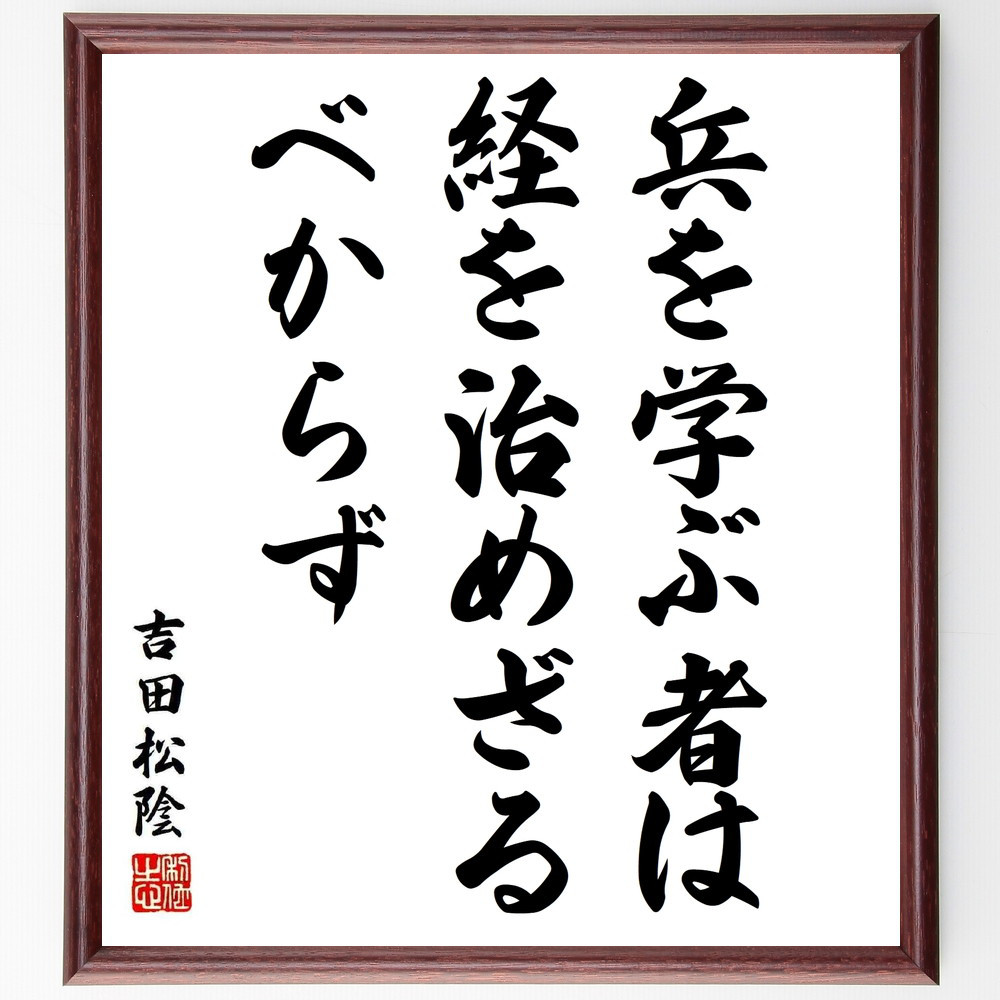 兵を学ぶ者は
経を治めざる
べからず
吉田松陰